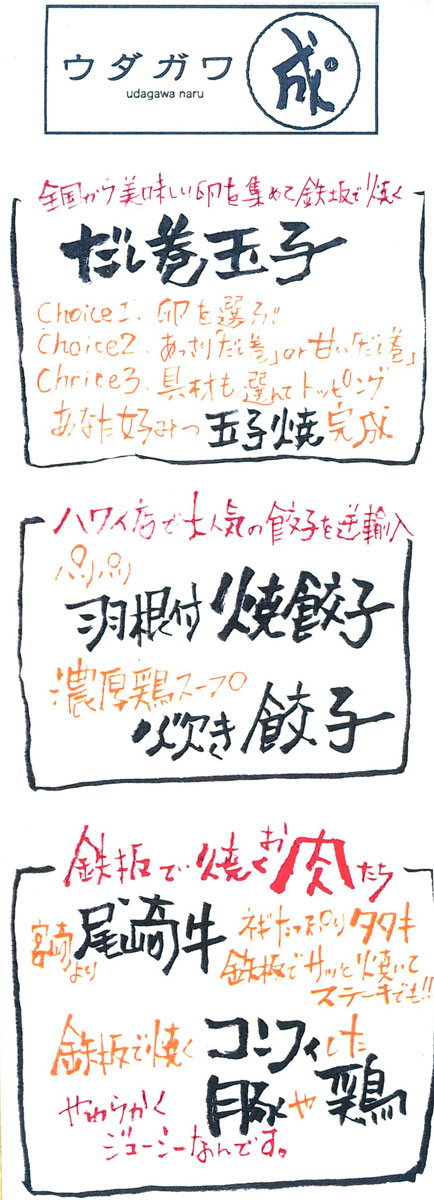 ウダガワ
udagawa naru
成
ル
全国から美味しい卵を集めて鉄板で焼く
だし巻玉子
Choice1. 卵を選ぶ!
Choice2. あっさり「だし巻」or甘い「だし巻」
Choice3. 具材も選んでトッピング
あなた好みの玉子焼完成
ハワイ店で大人気の餃子を逆輸入
パリパリ
羽根付焼餃子
濃厚鶏スープ
炊き餃子
鉄板で焼くお肉たち
宮崎より
尾崎牛
ネギたっぷりタタキ
鉄板でサッと焼いて
ステーキでも!!
鉄板で焼くコンフィした
豚や鶏
やわらかく
ジューシーなんです。